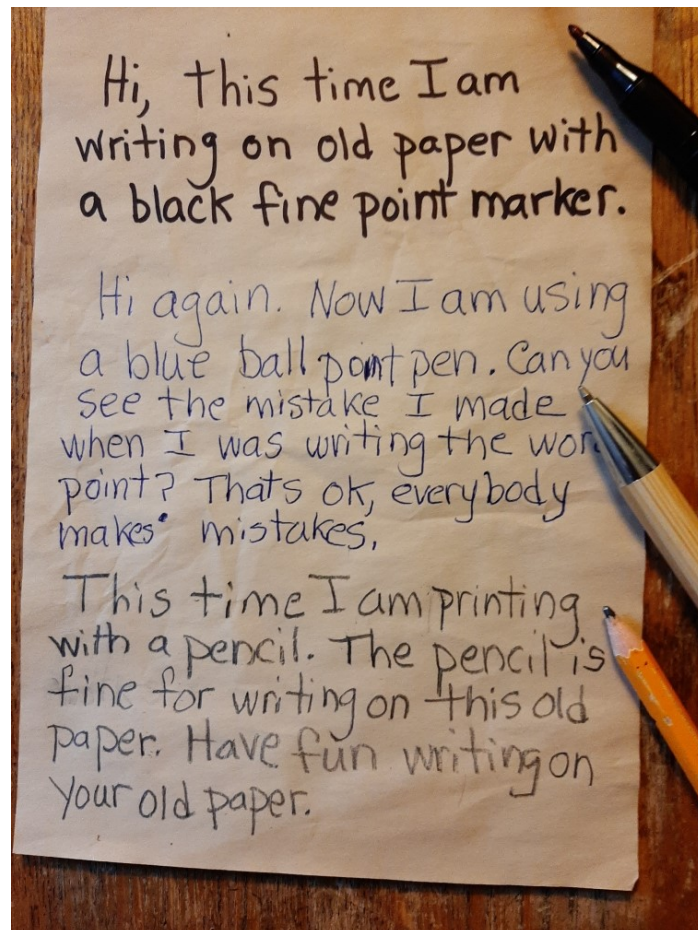 Hi, this time I am
writing on old paper with
a black fine point marker.
Hi again. Now I am using
a blue ball point pen. Can you
see the mistake I made
when I was writing the
point? Thats ok, everybody
makes mistakes,
This time I am printing
with a pencil. The pencil is
fine for writing on this old
paper. Have fun writing on
your old paper.